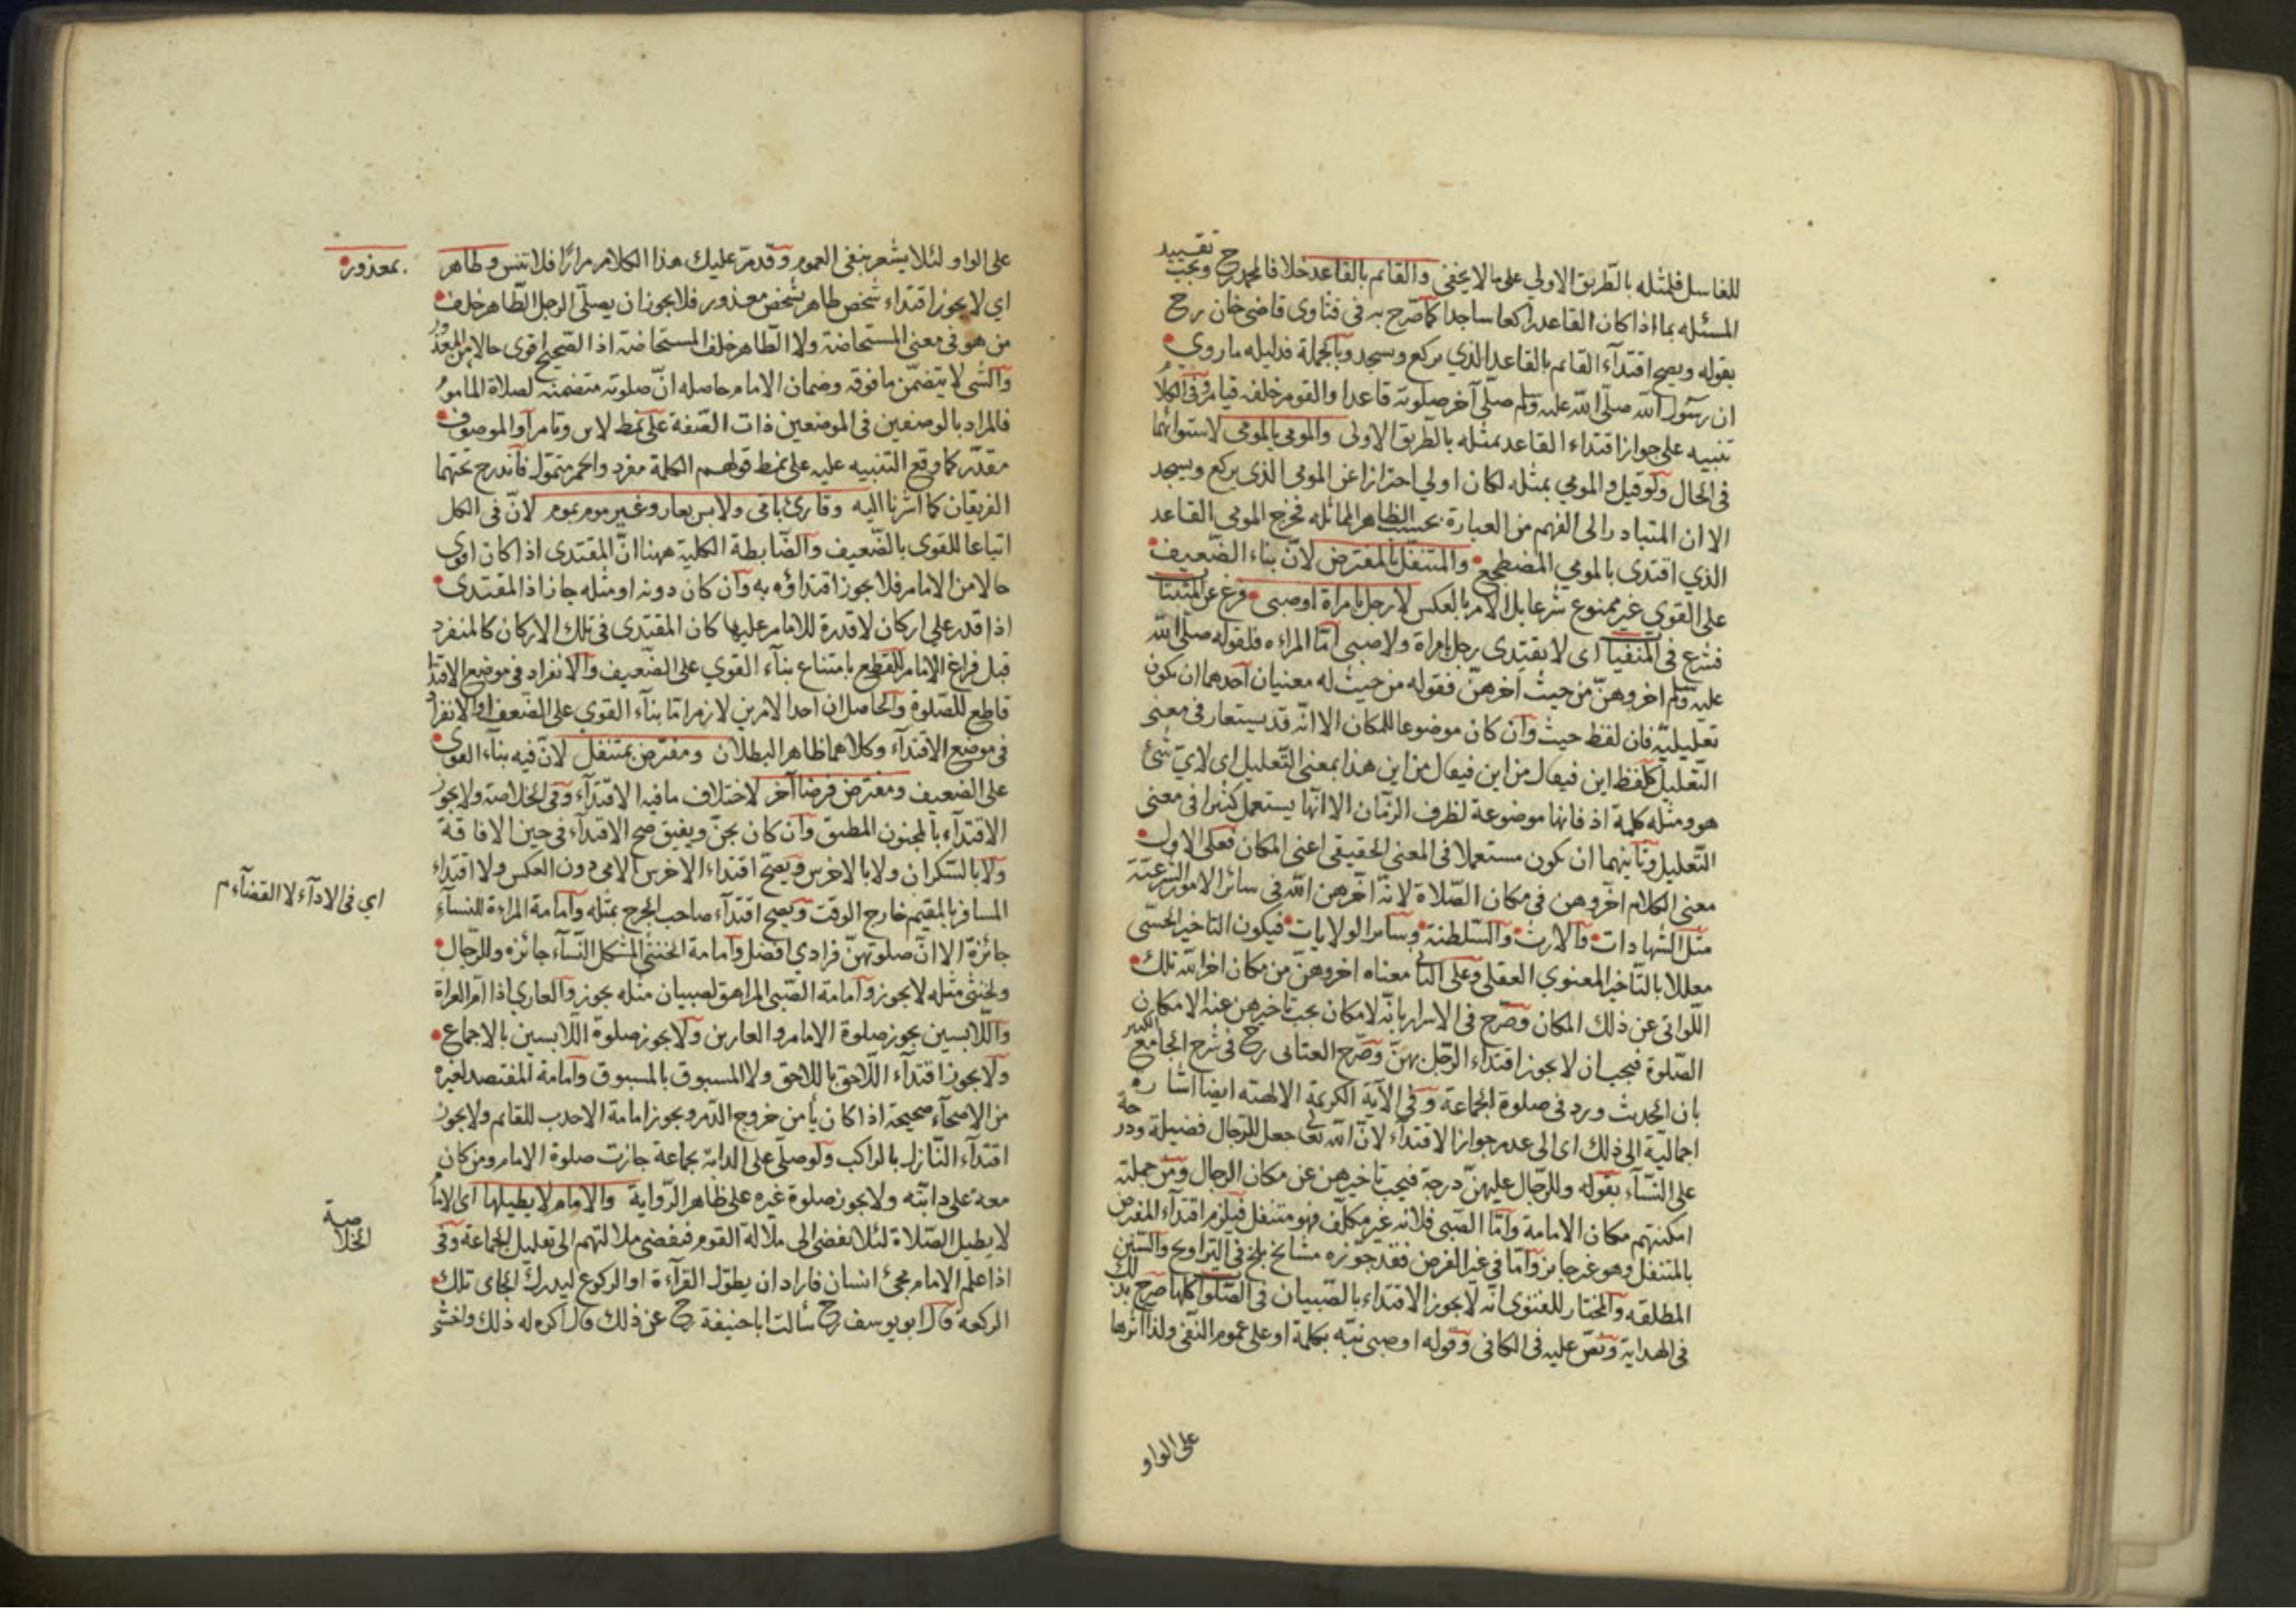 للغاسل فلمثله بالطريق الاولي على ما لا يخفى والقائم بالقاعد خلافا لمحمد رح ويجب تقييد
المسئله بما اذا كان القاعد راكعا ساجدا كما صرّح به في فتاوى قاضى خان رح
بقوله ويصح اقتدآء القائم بالقاعد الذي يركع ويسجد وبالجملة فدليله ما روي
ان رسول الله صلّى الله عليه وسلم صلّى آخر صلوته قاعدا والقوم خلفه قيام وفى الكلام
تنبيه على جواز اقتداء القاعد بمثله بالطريق الاولى والمومي بالمومى لاستوائهما
في الحال ولو قيل والمومي بمثله لكان اولي احترازا عن المومى الذى يركع ويسجد
الا ان المتبادر الى الفهم من العبارة بحسب الظاهر المماثله فخرج المومى القاعد
الذي اقتدى بالمومي المضطجع والمتنفّل بالمفترض لانّ بناء الضّعيف
على القوي غير ممنوع شرعا بل الامر بالعكس لا رجل بامرأة او صبى فرغ عن المثبتات
فشرع في المنفيات اى لا يقتدى رجل بامراة ولا صبى امّا المراءه فلقوله صلّى الله
عليه وسلم اخروهنّ من حيث أخرهنّ فقوله من حيث له معنيان احدهما ان يكون
تعليليّه فان لفظ حيث وان كان موضوعا للمكان الا انّه قد يستعار في معنى
التّعليل كلفظ اين فيقال من اين فيقال من اين هذا بمعنى التّعليل اى لايّ شئ
هو ومثله كلمة اذ فانها موضوعة لظرف الزّمان الا انّها يستعمل كثيرا في معنى
التّعليل وثانيهما ان يكون مستعملا فى المعنى الحقيقى اعنى المكان فعلى الاول
معنى الكلام اخّروهن في مكان الصّلاة لانّه اخّرهن الله في سائر الامور الشرعيّة
مثل الشهادات والارث والسّلطنة وسائر الولايات فيكون التاخير الحسّى
معللا بالتّأخير المعنوي العقلى وعلى الثاني معناه اخروهنّ من مكان اخر الله تلك
اللّواتى عن ذلك المكان وصرّح فى الاسرار بانّه لا مكان يجب تاخيرهن عنه الا مكان
الصّلوة فيجب ان لا يجوز اقتداء الرّجل بهنّ وصرّح العتابى رح في شرح الجامع الكبير
بان الحديث ورد في صلوة الجماعة وفي الآية الكريمة الالهته ايضا اشارة
اجماليّة الى ذلك اى الى عدم جواز الاقتدآء لانّ الله تعالى جعل للرّجال فضيلة ودرجة
على النّسآء بقوله وللرّجال عليهنّ درجة فيجب تاخيرهن عن مكان الرجال ومن جملة
امكنتهم مكان الامامة وامّا الصّبى فلانه غير مكلّف فهو متنفل فيلزم اقتدآء المفترض
بالمتنفل وهو غير جائز وامّا في غير الفرض فقد جوّزه مشائخ بلخ في التّراويح والسّنن
المطلقه والمختار للفتوى انّه لا يجوز الاقتداء بالصّبيان فى الصّلوات كلّها صرح بذلك
فى الهداية ونصّ عليه فى الكافى وقوله او صبى نبّه بكلمة او على عموم النّفى ولذا اثرها
على الواو
على الواو لئلا يشعر بنفى العموم وقد مرّ عليك هذا الكلام مرارًا فلا تنس وطاهر
بمعذور
اي لا يجوز اقتداء شخص طاهر بشخص معذور فلا يجوز ان يصلّى الرجل الطّاهر خلف
من هو في معنى المستحاضة ولا الطّاهر خلف المستحاضة اذ الصّحيح اقوى حالا من المعذور
والشى لا يتضمّن ما فوقه وضمان الامام حاصله انّ صلوته متضمنة لصلاة المأموم
فالمراد بالوصفين فى الموضعين ذات الصّفة على نمط لابن وتامر او الموصوف
مقدّر كما وقع التنبيه عليه على نمط قولهم الكلمة مفرد واحمر متموّل فاندرج تحتهما
الفريقان كما اشرنا اليه وقارئ بامى ولابس بعار وغير موم بموم لانّ فى الكل
اتباعا للقوى بالضّعيف والضّابطة الكلية ههنا انّ المقتدى اذا كان اقوى
حالا من الامام فلا يجوز اقتداؤه به وان كان دونه او مثله جاز اذ المقتدى
اذا قدر على اركان لا قدرة للامام عليها كان المقتدى فى تلك الاركان كالمنفرد
قبل فراغ الامام للقطع بامتناع بنآء القوي على الضّعيف والانفراد فى موضع الاقتدا
قاطع للصّلوة والحاصل ان احد الامرين لازم امّا بنآء القوي على الضّعف او الانفراد
فى موضع الاقتدآء وكلاهما ظاهر البطلان ومفترض بمتنفل لانّ فيه بناء القوى
على الضّعيف ومفترض فرضا آخر لاختلاف ما فيه الاقتدآء وفى الخلاصة ولا يجوز
الاقتدآء بالمجنون المطبق وان كان يجنّ ويفيق صح الاقتدآء فى حين الافاقة
ولا بالسّكران ولا بالاخرس ويصحّ اقتداء الاخرس الامى دون العكس ولا اقتداء
المسافر بالمقيم خارج الوقت ويصح اقتدآء صاحب الجرح بمثله وامامة المراءة للنسآء
اي فى الادآء لا القضآء م
جائزة الا انّ صلوتهنّ فرادي افضل وامامة الخنثى المشكل النّسآء جائزه وللرّجال
ولخنثى مثله لا يجوز وامامة الصّبى المراهق لصبيان مثله يجوز والعاري اذا امّ العراة
واللّابسين يجوز صلوة الامام والعارين ولا يجوز صلوة اللّابسين بالاجماع
ولا يجوز اقتدآء اللّاحق باللاحق ولا المسبوق بالمسبوق وامامة المفتصد لغيره
من الاصحّاء صحيحة اذا كان يأمن خروج الدّم ويجوز امامة الاحدب للقائم ولا يجوز
اقتدآء النّازل بالراكب ولو صلّى على الدابّة بجماعة جازت صلوة الامام ومن كان
معه على دابّته ولا يجوز صلوة غيره على ظاهر الرّواية والامام لا يطيلها اى الامام
لا يطيل الصّلاة لئلا يفضى الى ملالة القوم فيفضى ملالتهم الى تقليل الجماعة وفى
الخلاصة
اذا علم الامام بمجئ انسان فاراد ان يطوّل القرآءة او الركوع ليدرك الجاى تلك
الركعة قال ابو يوسف رح سألت ابا حنيفة رح عن ذلك قال اكره له ذلك واخشى